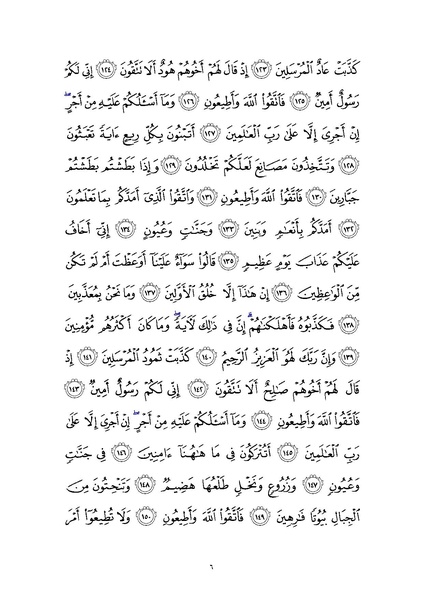 كَذَّبَتْ عَادٌ ٱلْمُرْسَلِينَ ١٢٣ إِذْ قَالَ لَهُمْ أَخُوهُمْ هُودٌ أَلَا تَتَّقُونَ ١٢٤ إِنِّي لَكُمْ
رَسُولٌ أَمِينٌ ١٢٥ فَٱتَّقُوا۟ ٱللَّهَ وَأَطِيعُونِ ١٢٦ وَمَآ أَسْـَٔلُكُمْ عَلَيْهِ مِنْ أَجْرٍ ۖ
إِنْ أَجْرِىَ إِلَّا عَلَىٰ رَبِّ ٱلْعَـٰلَمِينَ ١٢٧ أَتَبْنُونَ بِكُلِّ رِيعٍ ءَايَةً تَعْبَثُونَ
١٢٨ وَتَتَّخِذُونَ مَصَانِعَ لَعَلَّكُمْ تَخْلُدُونَ ١٢٩ وَإِذَا بَطَشْتُم بَطَشْتُمْ
جَبَّارِينَ ١٣٠ فَٱتَّقُوا۟ ٱللَّهَ وَأَطِيعُونِ ١٣١ وَٱتَّقُوا۟ ٱلَّذِىٓ أَمَدَّكُم بِمَا تَعْلَمُونَ
١٣٢ أَمَدَّكُم بِأَنْعَـٰمٍ وَبَنِينَ ١٣٣ وَجَنَّـٰتٍ وَعُيُونٍ ١٣٤ إِنِّىٓ أَخَافُ
عَلَيْكُمْ عَذَابَ يَوْمٍ عَظِيمٍ ١٣٥ قَالُوا۟ سَوَآءٌ عَلَيْنَآ أَوَعَظْتَ أَمْ لَمْ تَكُن
مِّنَ ٱلْوَٰعِظِينَ ١٣٦ إِنْ هَـٰذَآ إِلَّا خُلُقُ ٱلْأَوَّلِينَ ١٣٧ وَمَا نَحْنُ بِمُعَذَّبِينَ
١٣٨ فَكَذَّبُوهُ فَأَهْلَكْنَـٰهُمْ ۗ إِنَّ فِى ذَٰلِكَ لَـَٔايَةً ۖ وَمَا كَانَ أَكْثَرُهُم مُّؤْمِنِينَ
١٣٩ وَإِنَّ رَبَّكَ لَهُوَ ٱلْعَزِيزُ ٱلرَّحِيمُ ١٤٠ كَذَّبَتْ ثَمُودُ ٱلْمُرْسَلِينَ ١٤١ إِذْ
قَالَ لَهُمْ أَخُوهُمْ صَـٰلِحٌ أَلَا تَتَّقُونَ ١٤٢ إِنِّي لَكُمْ رَسُولٌ أَمِينٌ ١٤٣
فَٱتَّقُوا۟ ٱللَّهَ وَأَطِيعُونِ ١٤٤ وَمَآ أَسْـَٔلُكُمْ عَلَيْهِ مِنْ أَجْرٍ ۖ إِنْ أَجْرِىَ إِلَّا عَلَىٰ
رَبِّ ٱلْعَـٰلَمِينَ ١٤٥ أَتُتْرَكُونَ فِى مَا هَـٰهُنَآ ءَامِنِينَ ١٤٦ فِى جَنَّـٰتٍ
وَعُيُونٍ ١٤٧ وَزُرُوعٍ وَنَخْلٍ طَلْعُهَا هَضِيمٌ ١٤٨ وَتَنْحِتُونَ مِنَ
ٱلْجِبَالِ بُيُوتًا فَـٰرِهِينَ ١٤٩ فَٱتَّقُوا۟ ٱللَّهَ وَأَطِيعُونِ ١٥٠ وَلَا تُطِيعُوٓا۟ أَمْرَ
٦